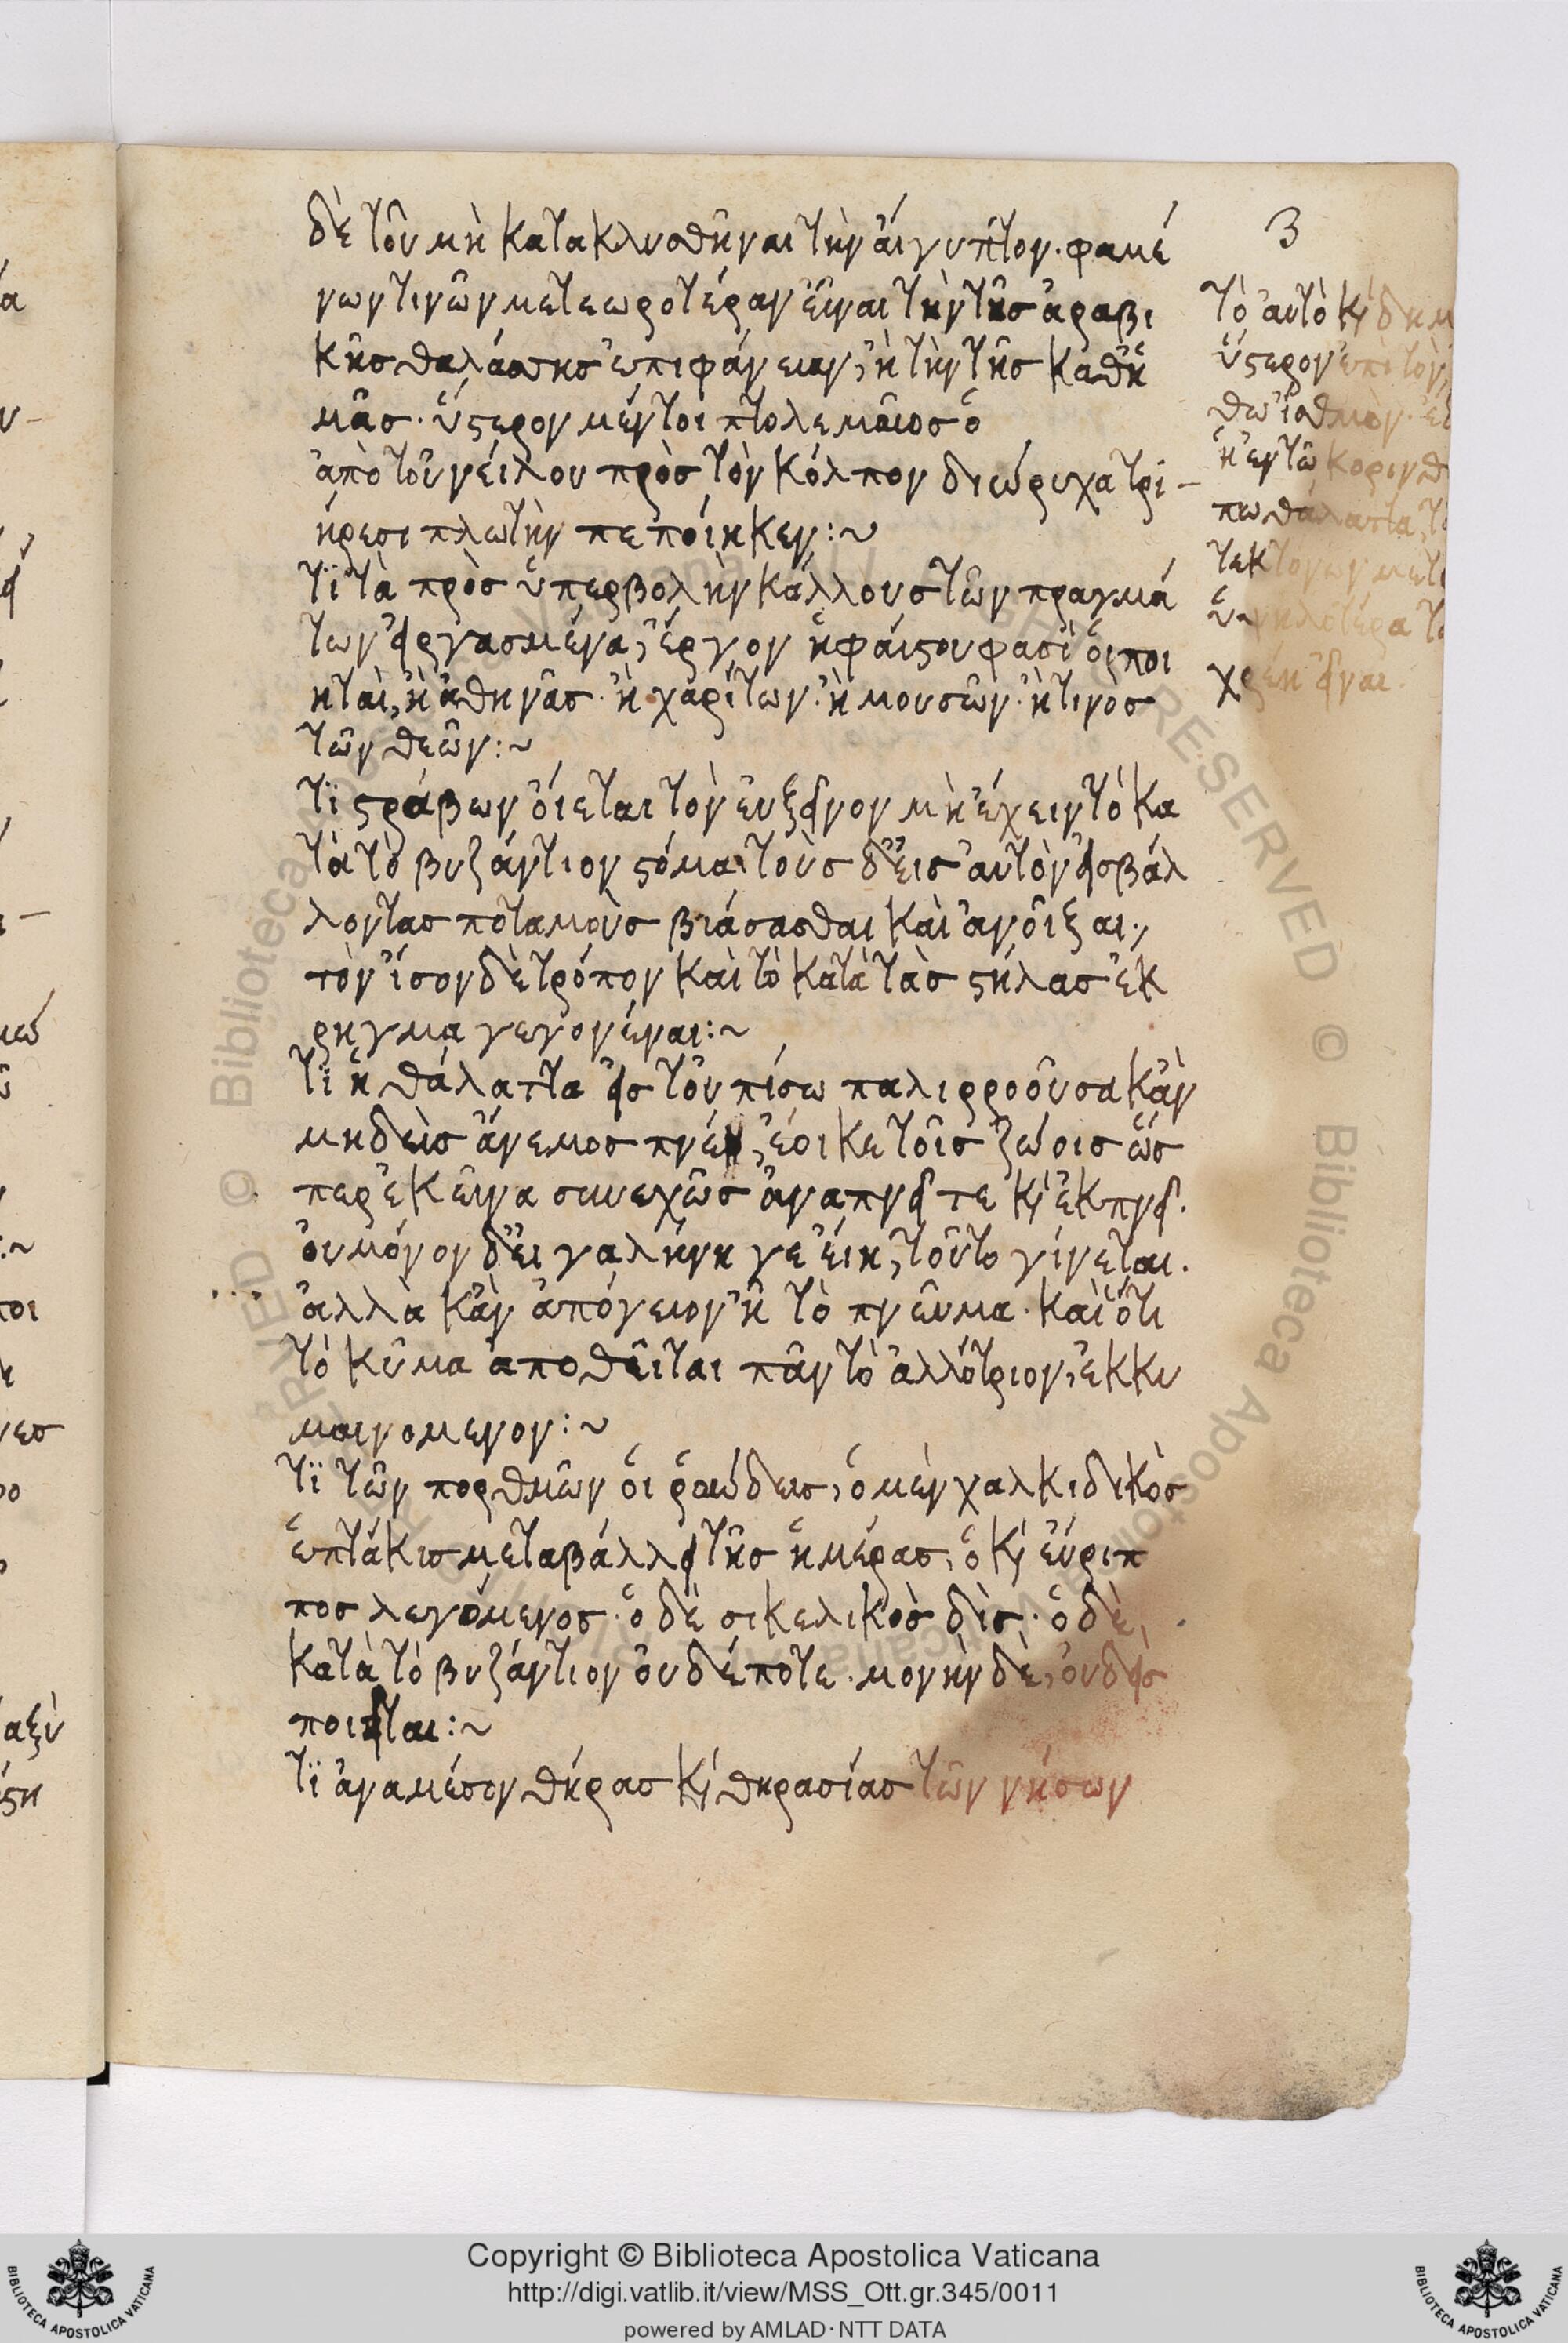 3
δὲ τοῦ μὴ κατακλυσθῆναι τὴν ἄιγυπτον· φαμέ
νων τινῶν μετεωροτέραν ἔιναι τὴν τῆσ ἀραβι
κῆσ θαλάσσησ ἐπιφάνειαν, ἢ τὴν τῆσ καθ' ἡ
μᾶσ· ὕστερον μέντοι πτολεμαῖοσ ὁ
ἀπὸ τοῦ νείλου πρὸσ τὸν κόλπον διώρυχα τρι-
ήρεσι πλωτὴν πεποίηκεν:~
τϊ τὰ πρὸσ ὑπερβολὴν κάλλουσ τῶν πραγμά
των ἐιργασμένα, ἔργον ἡφαίστου φασὶ ὁι ποι
ηταὶ, ἢ ἀθηνᾶσ· ἢ χαρίτων· ἢ μουσῶν· ἤ τινοσ
τῶν θεῶν:~
τϊ στράβων ὄιεται τὸν ἔυξεινον μὴ ἔχειν τὸ κα
τὰ τὸ βυζάντιον στόμα· τοὺσ δ' ἐισ ἀυτὸν ἐισβάλ
λοντασ ποταμοὺσ βιάσασθαι καὶ ἀνοῖξαι·,
τὸν ἴσον δὲ τρόπον καὶ τὸ κατὰ τὰσ στήλασ ἔκ
ρηγμα γεγονέναι:~
τϊ ἡ θάλαττα ἐισ τὸυπίσω παλιρροοῦσα κἂν
μηδεὶσ ἄνεμοσ πνέη, ἔοικε τοῖσ ζώοισ ὥσ
περ ἐκεῖνα συνεχῶσ ἀναπνεῖ τε κὶ ἐκπνεῖ.
ὀυ μόνον δ' ἐι γαλήνη γε ἔιη, τοῦτο γίνεται.
ἀλλὰ κἂν ἀπόγειον ἦ τὸ πνεῦμα· καὶ ὅτι
τὸ κῦμα ἀποθεῖται πᾶν τὸ ἀλλότριον, ἐκκυ
μαινομενον:~
τϊ τῶν πορθμῶν ὁι ῥοώδεισ, ὁ μὲν χαλκιδικὸσ
ἑπτάκισ μεταβάλλει τῆσ ἡμέρασ, ὁ κὶ ἔυριπ
ποσ λεγόμενοσ· ὁ δὲ σικελικὸσ δὶσ· ὁ δὲ
κατὰ τὸ βυζάντιον ὀυδέποτε· μονὴν δὲ, ὀυδεὶσ
ποιεῖται:~
τϊ ἀναμέσον θήρασ κὶ θηρασίασ τῶν νήσων
τὸ ἀυτὸ κὶ δημ
ὕστερον ἐπὶ τὸν
θω ἰσθμὸν·
ἡ ἐν τῶ κορινθ
πω θάλαττα,
τεκτόνων μετ
ὑψηλοτέρα
χρέη ἐιναι.
Copyright © Biblioteca Apostolica Vaticana
http://digi.vatlib.it/view/MSS_Ott.gr.345/0011
powered by AMLAD·NTT DATA